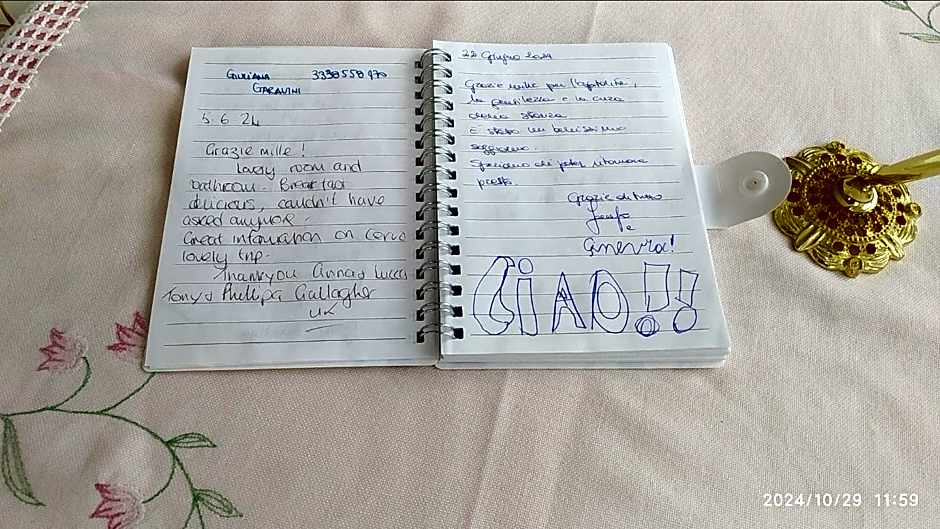 GIULIANA 3338558970
GARAVINI
5.6 24
Grazie mille!
Lovely room and
bathroom. Breakfast
delicious, couldn't have
asked anymore.
Great information on Cervo
lovely trip.
Thankyou Anna & Lucca
Tony & Phillipa Gallagher
UK
22 Giugno 2024
Grazie mille per l'ospitalità,
la gentilezza e la cura
della stanza
E' stato un bellissimo
soggiorno.
Speriamo di poter ritornare
presto.
Grazie di tutto
e
Ginevra!
CIAO!!
2024/10/29 11:59